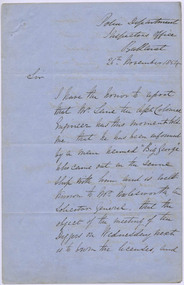 Police Department
Inspectors Office
Ballarat
25th November 1854
Sir
I have the honor to report
that Mr Lane the Colonial
Engineer has this moment told
me that he has been informed
by a man named "Big George"
who came out in the same
Ship with him and is well
known to Mr Molesworth the
Solicitor general that the
object of the meeting of the
Diggers on Wednesday next
is to burn the licenses and